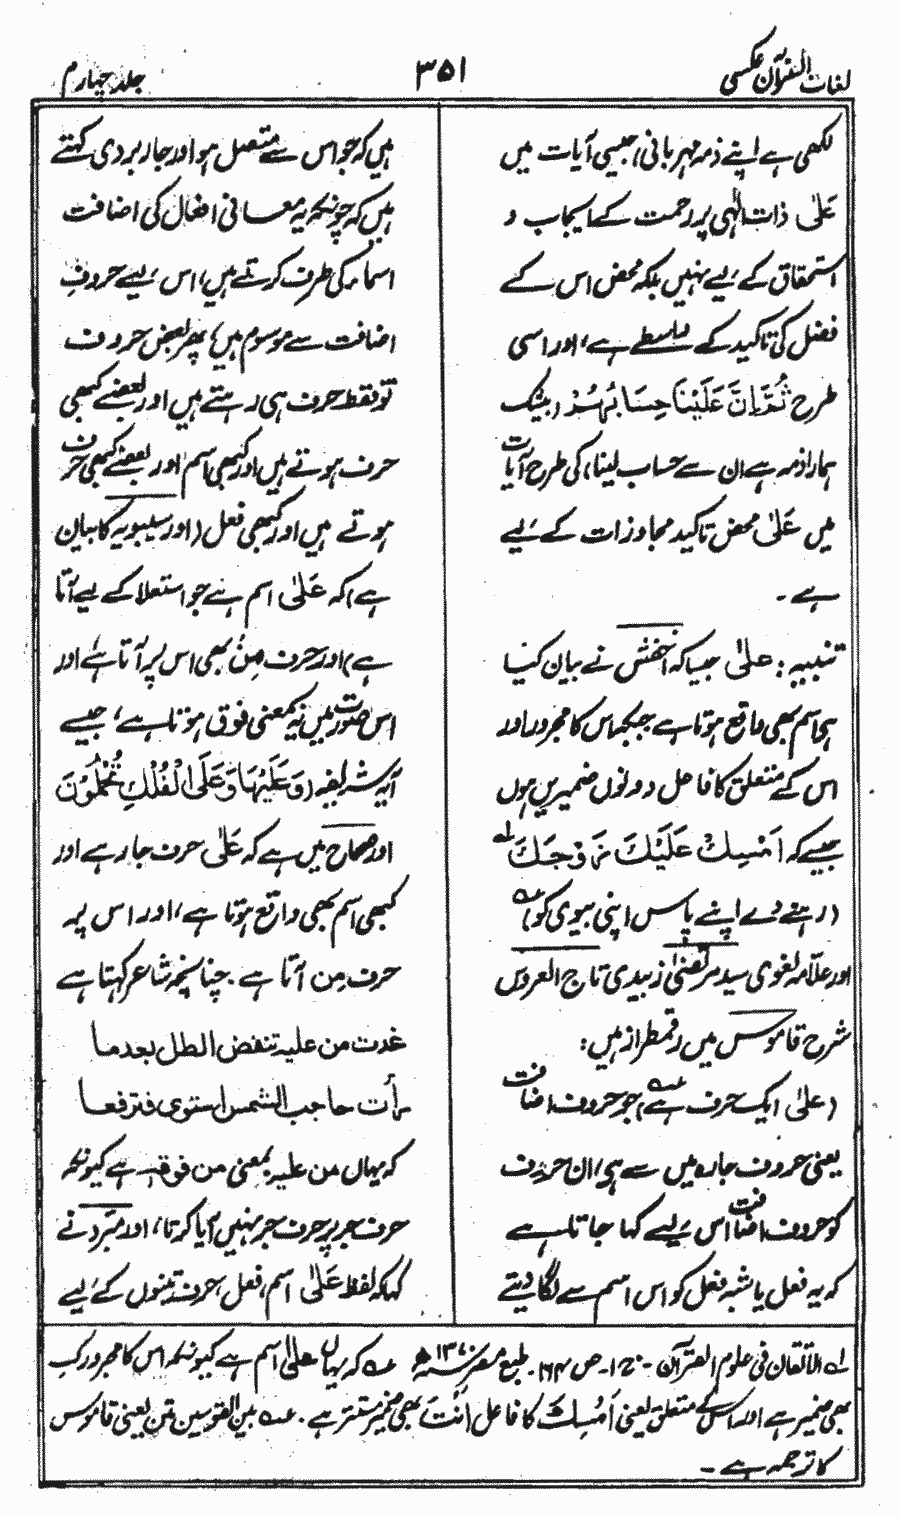 لغات القرآن عکسی
۳۵۱
جلد چہارم
لکھی ہے اپنے ذمہ مہربانی) جیسی آیات میں
عَلیٰ ذات الٰہی پر رحمت کے ایجاب و
استحقاق کے لیے نہیں بلکہ محض اس کے
فضل کی تاکید کے واسطے ہے، اور اسی
طرح ثُمَّ اِنَّ عَلَیْنَا حِسَابَهُمْ (بیشک
ہمارا ذمہ ہے ان سے حساب لینا) کی طرح آیات
میں عَلیٰ محض تاکید مجاوزات کے لیے
ہے۔
تنبیہ: علیٰ جیسا کہ اخفش نے بیان کیا
ہی اسم بھی واقع ہوتا ہے جبکہ اس کا مجرور اور
اس کے متعلق کا فاعل دونوں ضمیریں ہوں
جیسے کہ اَمْسِكْ عَلَیْكَ زَوْجَكَ لہ
(رہنے دے اپنے پاس اپنی بیوی کو) عہ
اور علامہ لغوی سید مرتضیٰ زبیدی تاج العروس
شرح قاموس میں رقمطراز ہیں:
(علیٰ ایک حرف ہے) عہ جو حروف اضافت
یعنی حروف جارہ میں سے ہی، ان حروف
کو حروف اضافت اس لیے کہا جاتا ہے
کہ یہ فعل یا شبہ فعل کو اس اسم سے لگا دیتے
ہیں کہ جو اس سے متصل ہو اور جار بردی کہتے
ہیں کہ چونکہ یہ معانی افعال کی اضافت
اسماء کی طرف کرتے ہیں، اس لیے حروفِ
اضافت سے موسوم ہیں، پھر بعض حروف
تو فقط حرف ہی رہتے ہیں اور بعضے کبھی
حرف ہوتے ہیں اور کبھی اسم اور بعضے کبھی حرف
ہوتے ہیں اور کبھی فعل (اور سیبویہ کا بیان
ہے) کہ عَلیٰ اسم ہے جو استعلا کے لیے آتا
ہے) اور حرف مِنْ بھی اس پر آتا ہے اور
اس صورت میں یہ بمعنی فوق ہوتا ہے، جیسے
آیہ شریفہ (وَعَلَیْهَا وَعَلَی الْفُلْكِ تُحْمَلُوْنَ
اور صحاح میں ہے کہ عَلیٰ حرف جار ہے اور
کبھی اسم بھی واقع ہوتا ہے، اور اس پہ
حرف مِن آتا ہے۔ چنانچہ شاعر کہتا ہے
غدت من علیه تنفض الطل بعدما
رأت حاجب الشمس استوی فترفعا
کہ یہاں من علیہ بمعنی من فوقہ ہے کیونکہ
حرف جر پر حرف جر نہیں آیا کرتا، اور مبّرد نے
کہا کہ لفظ عَلیٰ اسم، فعل، حرف تینوں کے لیے
لہ الاتقان فی علوم القرآن۔ ج ۱۔ ص ۱۶۴۔ طبع مصر سنہ ۱۳۶۰ھ عہ کہ یہاں علیٰ اسم ہے کیونکہ اس کا مجرور ک
بھی ضمیر ہے اور اس کے متعلق یعنی اَمْسِك کا فاعل اَنْتَ بھی ضمیر مستتر ہے۔ عہ بین القوسین متن یعنی قاموس
کا ترجمہ ہے۔